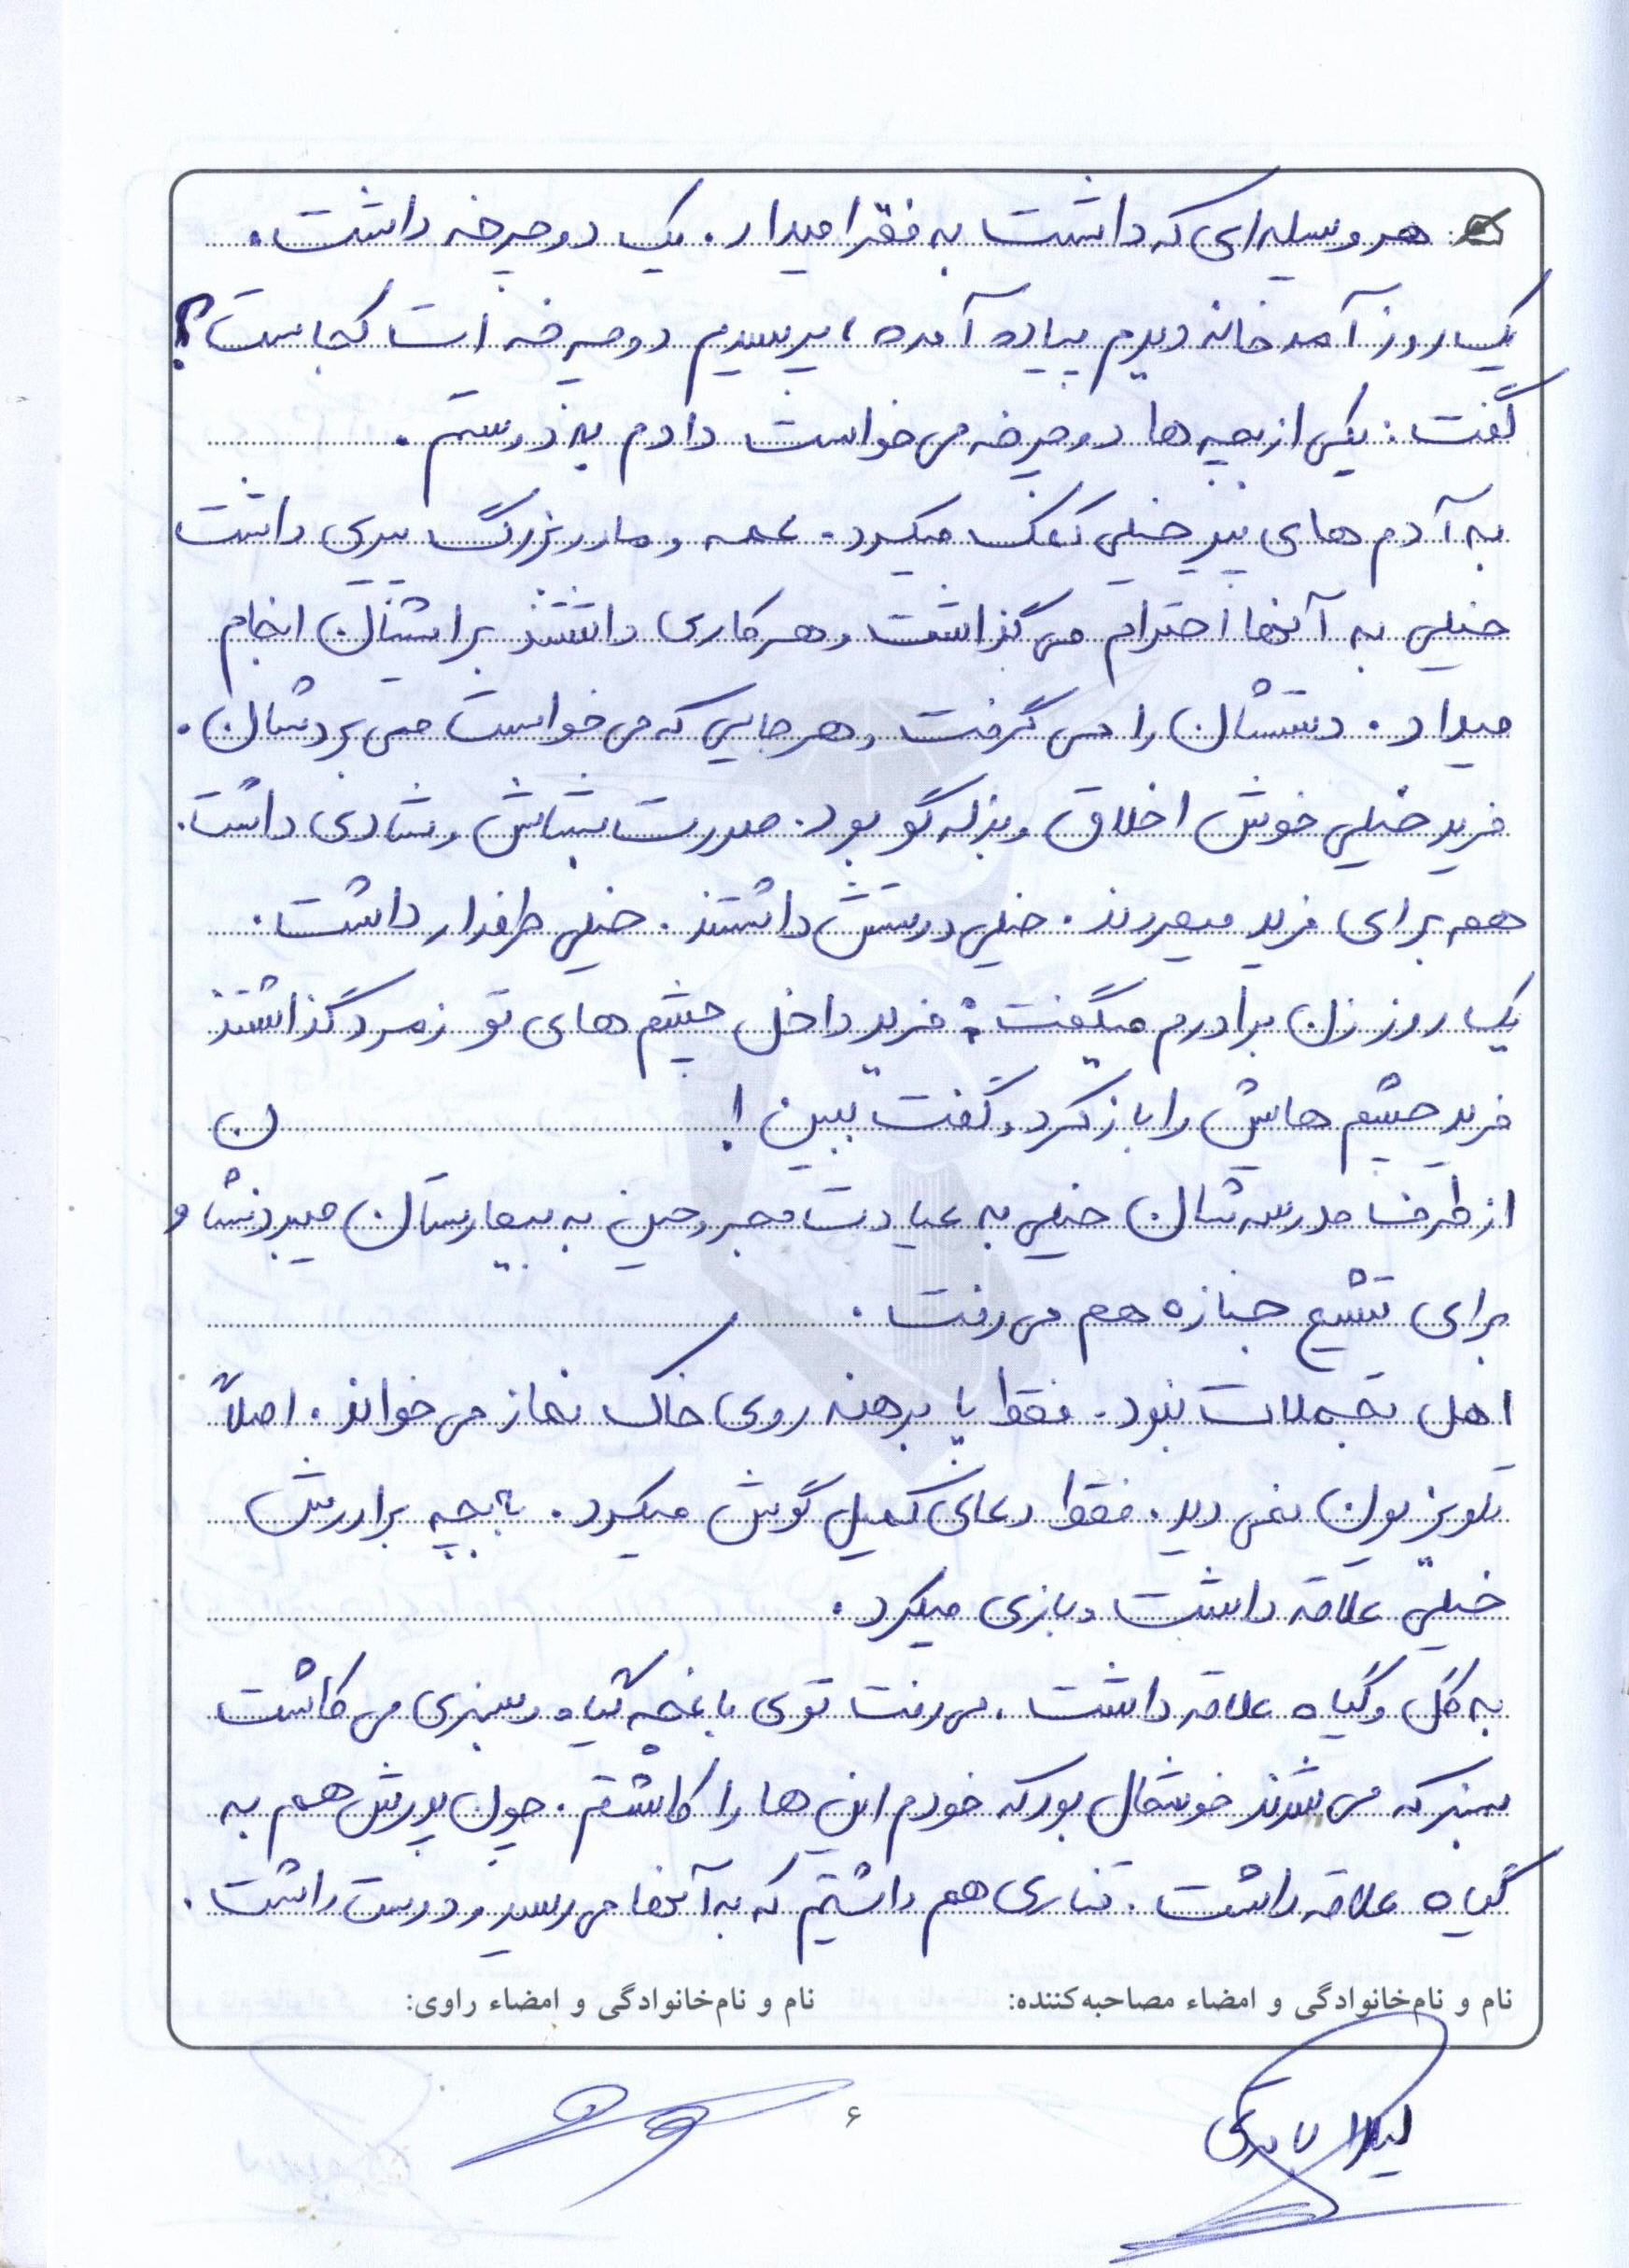 هر وسیله‌ای که داشت به فقرا میداد. یک دوچرخه داشت.
یک روز آمد خانه دیدم پیاده آمده، پرسیدم دوچرخه ات کجاست؟
گفت: یکی از بچه ها دوچرخه می‌خواست دادم به دوستم.
به آدم های پیر خیلی کمک میکرد. عمه و مادربزرگ پیری داشت
خیلی به آنها احترام می گذاشت و هر کاری داشتند برایشان انجام
میداد. دستشان را می گرفت و هر جایی که می خواست می بردشان.
فرید خیلی خوش اخلاق و بذله گو بود. صورت بشاش و شادی داشت.
همه برای فرید میمردند. خیلی دوستش داشتند. خیلی طرفدار داشت.
یک روز زن برادرم میگفت: فرید داخل چشم های تو زمرد گذاشتند
فرید چشم هایش را باز کرد و گفت ببین!
از طرف مدرسه شان خیلی به عیادت مجروحین به بیمارستان میبردنشان و
برای تشیع جنازه هم می رفت.
اهل تجملات نبود. فقط پا برهنه روی خاک نماز می خواند. اصلاً
تلویزیون نمی دید. فقط دعای کمیل گوش میکرد. با بچه برادرش
خیلی علاقه داشت و بازی میکرد.
به گل و گیاه علاقه داشت. می رفت توی باغچه گیاه و سبزی می کاشت
سبز که می شدند خوشحال بود که خودم این ها را کاشتم. چون پدرش هم به
گیاه علاقه داشت. قناری هم داشتیم که به آنها می رسید و دوست داشت.
نام و نام‌خانوادگی و امضاء مصاحبه‌کننده: نام و نام‌خانوادگی و امضاء راوی:
لیلا
۶